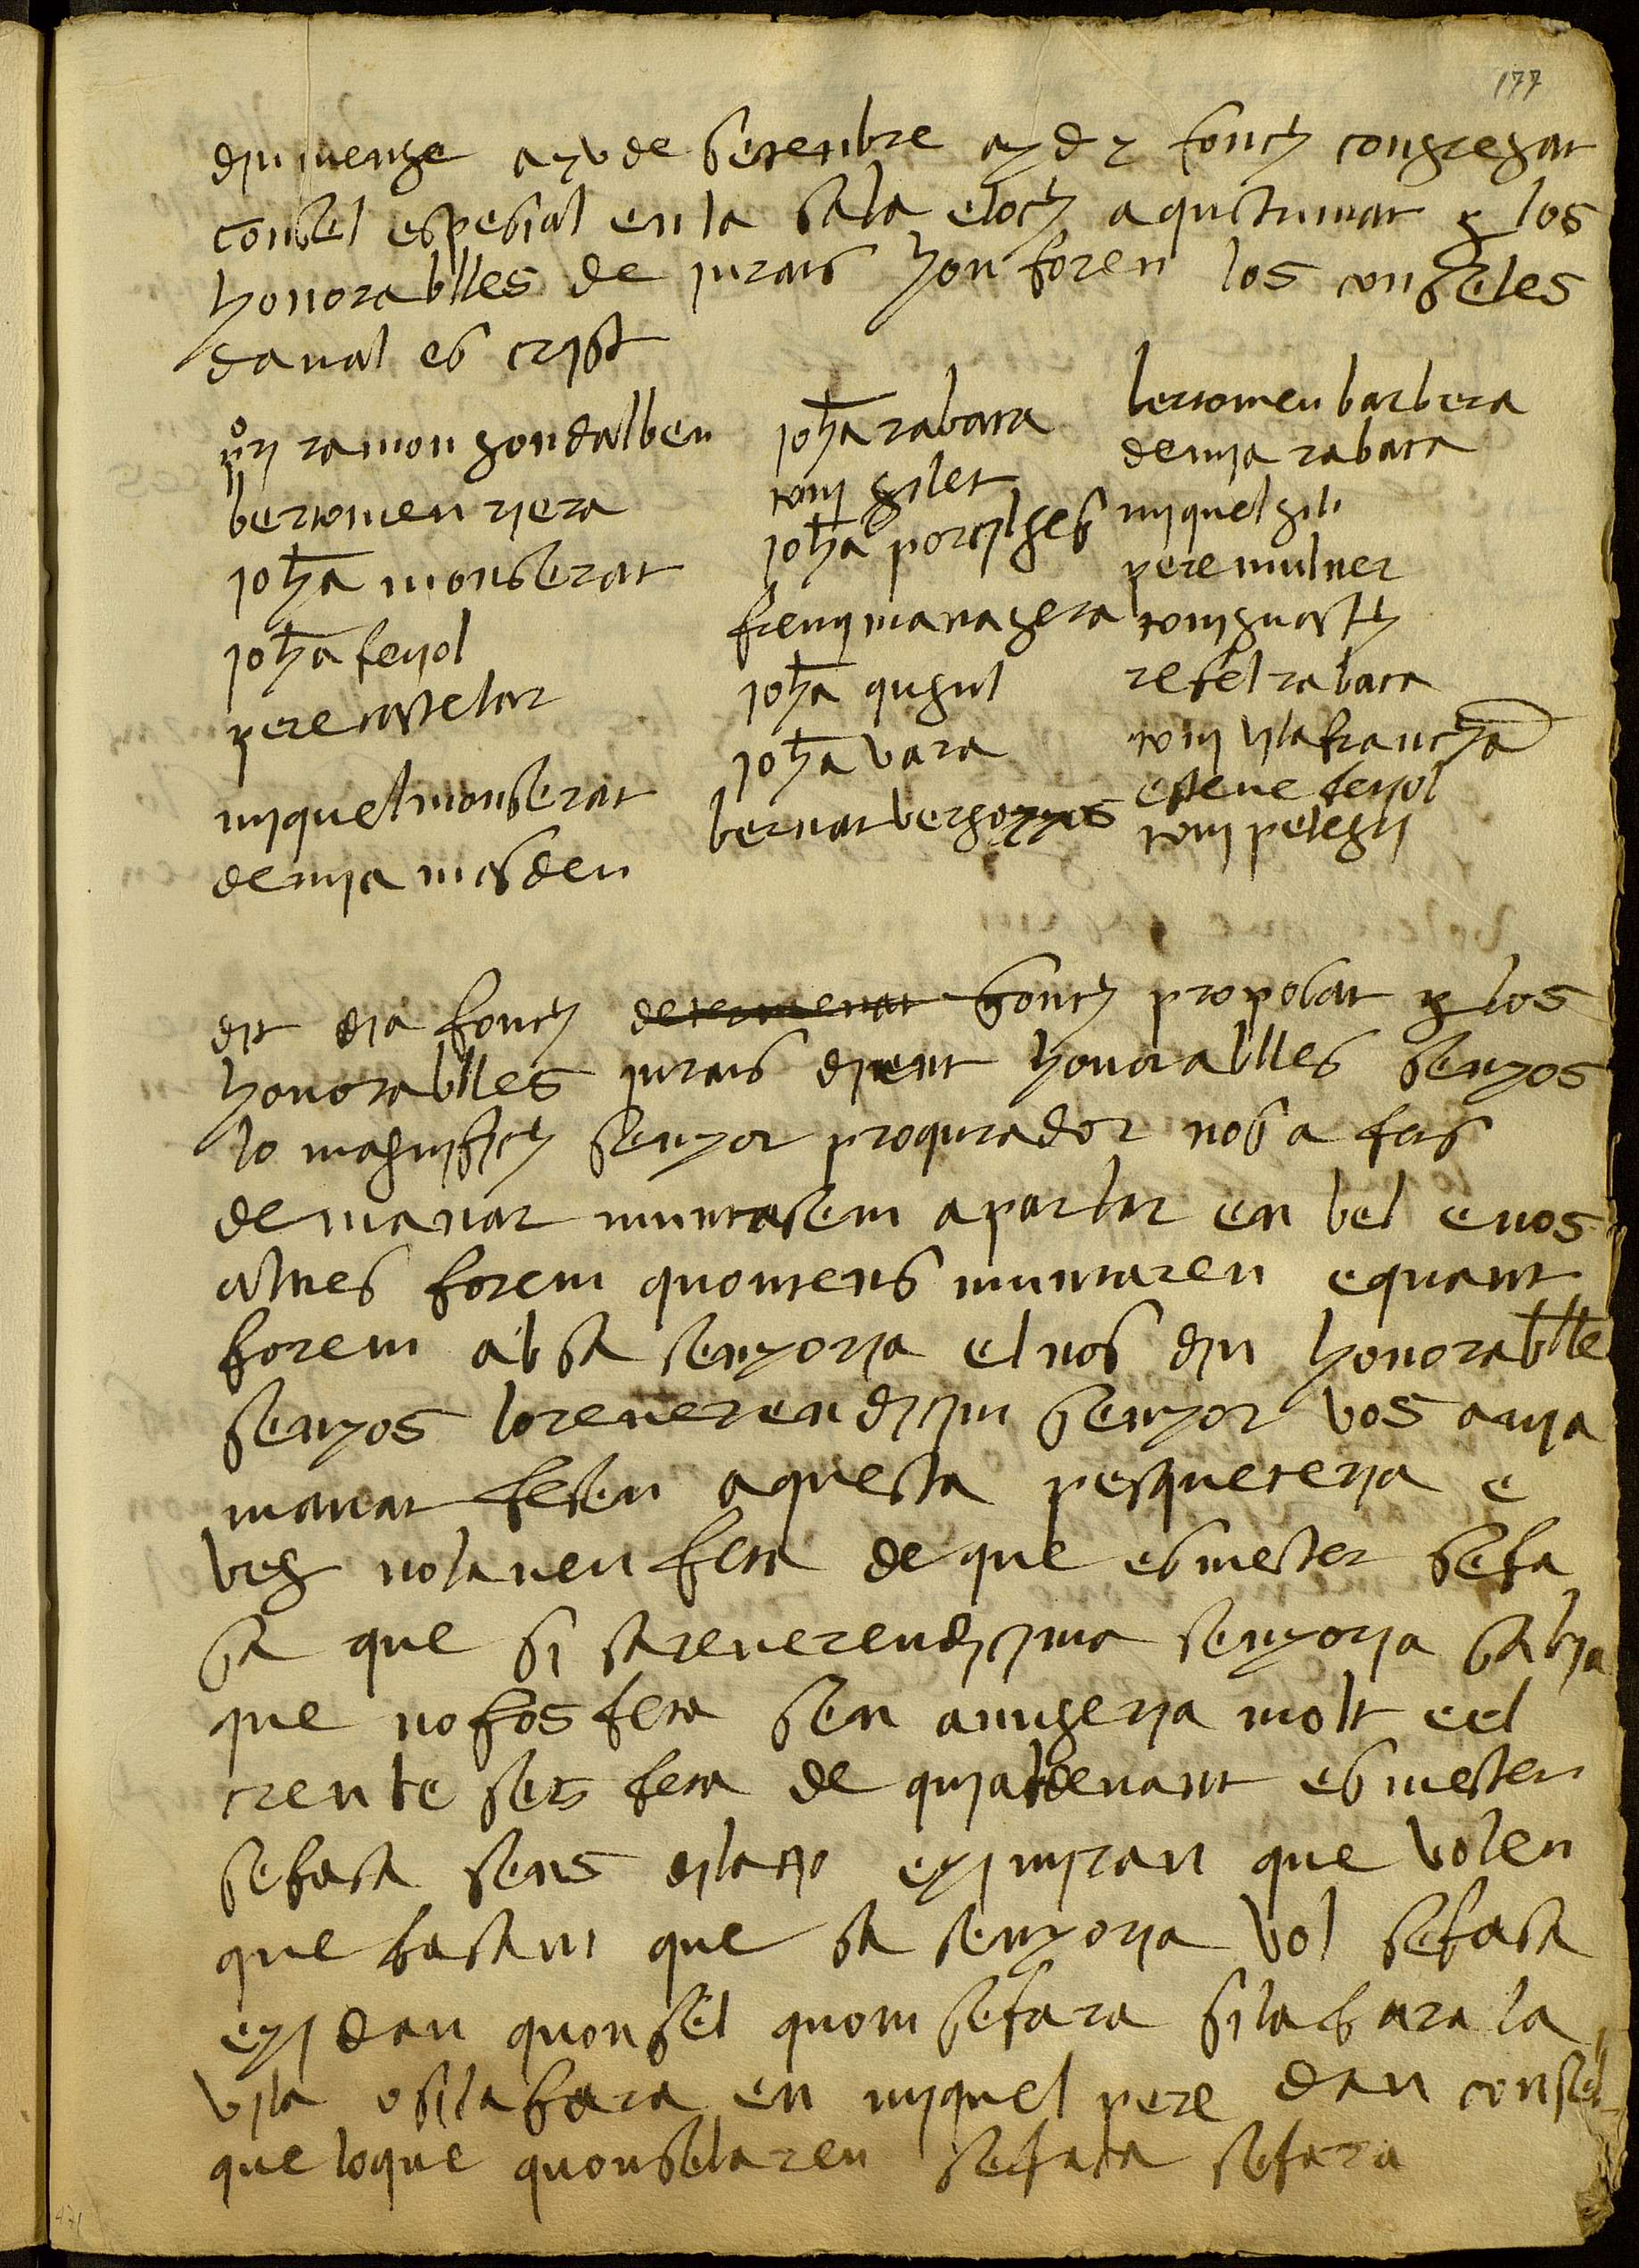 177
dimenge a xv de setenbre ay d y fonch congregat
consel espesial en la sala e loch aqustumat p los
honorablles de jurats hon foren los conseles
daval escrist
pº ramon gondalbeu
bertomeu riera
johā monserat
johā feriol
pere castelar
miquel monserat
demia masdeu
johā rabasa
toni gilet
johā porsilges
freni managera
johā qugul
johā vara
bernat bergoyos
bertomeu barbera
demia rabasa
miquel gili
pere mulner
toni guasch
refel rabasa
toni vilafrancha
esteve feriol
toni pelegri
dit dia fonch determenat fonch proposat p los
honorablles jurats dient honorablles senyos
lo magnifich senyor proqurador nos a fets
demanar muntasem a parlar en bel e nos
altres forem quontens muntaren e quant
forem ab sa senyoria el nos diu honorablle
senyos lo reverendisim senyor vos avia
manat fesen aquesta pesqueteria e
veg no l aveu feta de que es mester se fa
sa que si sa reverendisima senyoria sabia
que no fos feta sen anugeria molt e el
creu le ses feta de quialdevant es mester
se fasa sens dilasio e y miran que volen
que fasam que sa senyoria vol se fasa
e y dau quonsel quom se fara si la fara la
vila o si la fara en miquel pere dau consel
que lo que quonselaren se fasa se fara